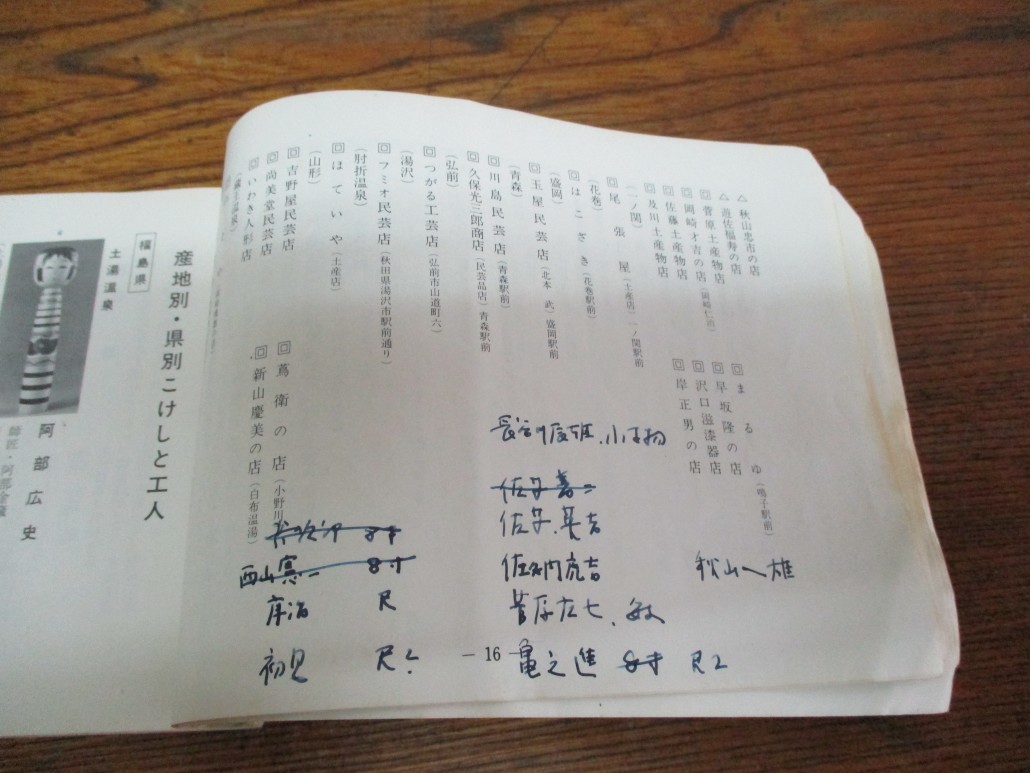 △秋山忠市の店
△遊佐福寿の店
回菅原土産物店
回岡崎才吉の店(岡崎仁治)
回佐藤土産物店
回及川土産物店
回まるゆ(鳴子駅前)
回早坂隆の店
回沢口滋漆器店
回岸正男の店
(一ノ関)
回尾張屋(土産店)一ノ関駅前
(花巻)
回はこざき(花巻駅前)
(盛岡)
回玉屋民芸店(北本 武)盛岡駅前
(青森)
回川島民芸店(青森駅前)
回久保光三郎商店(民芸品店)青森駅前
(弘前)
回つがる工芸店(弘前市山道町六)
(湯沢)
回フミオ民芸店(秋田県湯沢市駅前通り)
(肘折温泉)
回ほていや(土産店)
(山形)
回吉野屋民芸店
回尚美堂民芸店
回いわき人形店
回蔦衛の店(小野川
回新山慶美の店(白布温湯)
長谷川辰雄、小物
佐々木
西山憲一 8寸
尺
初見 尺
菅原庄七、敏
亀之進 8寸 尺2
秋山一雄
— 16 —
産地別・県別こけしと工人
福島県
土湯温泉
阿部広史
師匠・阿部金蔵